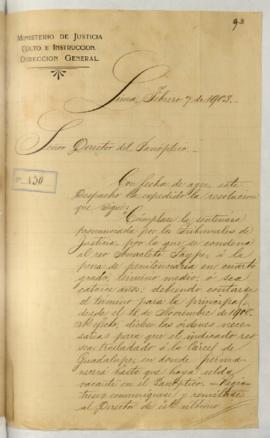 93
MINISTERIO DE JUSTICIA
CULTO E INSTRUCCION
DIRECCION GENERAL
Lima, Febrero 7 de 1903.
Señor Director del Panóptico.
Nº 130
Con fecha de ayer este
Despacho ha expedido la resolucion
que sigue:
Cúmplase la sentencia
pronunciada por los Tribunales de
Justicia, por la que se condena
al reo Amaleto á la
pena de penitenciaria en cuarto
grado, termino medio, ó sea
catorce años: debiendo contarse
el termino para la principal
desde el 16 de Noviembre de
dicten las órdenes necesa-
rias para que el indicado reo
sea trasladado á la Carcel de
Guadalupe, en donde perma-
necerá hasta que haya celda
vacante en el Panóptico. Regis-
trese, comuníquese y remítase
al Director de este ultimo